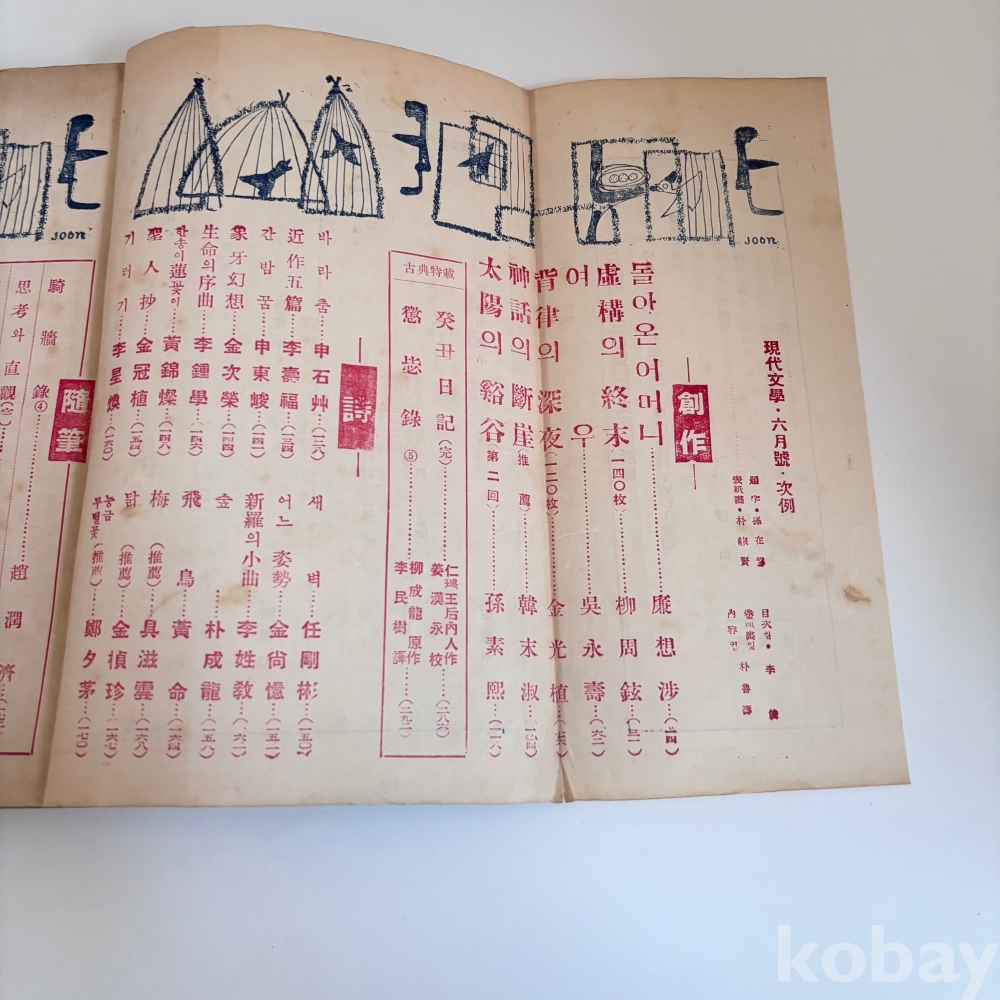 現代文學・六月號・次例
表紙畵・朴
朴
李
創作
돌아온어머니……廉想涉
虛構의終末(一四〇枚)……柳周鉉
여우……吳永壽(六二)
背律의深夜(一二〇枚)……金光植
神話의斷崖(推薦)……韓末淑(一〇四)
太陽의谿谷第二回……孫素熙
古典特載
癸丑日記(完)……仁穆王后內人作 姜漢永校(二八六)
懲毖錄⑤……柳成龍原作 李民樹譯(二九二)
詩
바라춤……申石艸(一三八)
近作五篇……李壽福(一三四)
간밤꿈……申東峻(一四一)
象牙幻想……金次榮(一四四)
生命의序曲……李鍾學(一四六)
한송이蓮꽃이……黃錦燦(一四八)
聖人抄……金冠植(一五四)
기러기……李星煥(一六〇)
새벽……任剛彬(一五〇)
어느姿勢……金尙憶(一五二)
新羅의小曲……李姓敎(一六二)
朴成龍(一五八)
飛鳥……黃命(一六四)
梅(推薦)……具滋雲(一六八)
탑(推薦)……金楨珍(一六七)
능금 무딜꽃(推薦)……鄭夕茅(一七〇)
隨筆
騎牆錄④
思考와直觀
趙潤濟
joon
joon
kobay